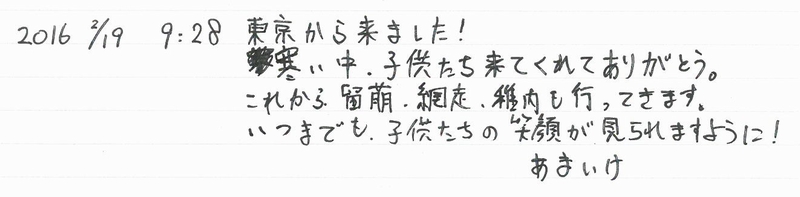 2016 2/19 9:28 東京から来ました!
寒い中、子供たち来てくれてありがとう。
これから留萌、網走、稚内も行ってきます。
いつまでも、子供たちの笑顔が見られますように!
あまいけ